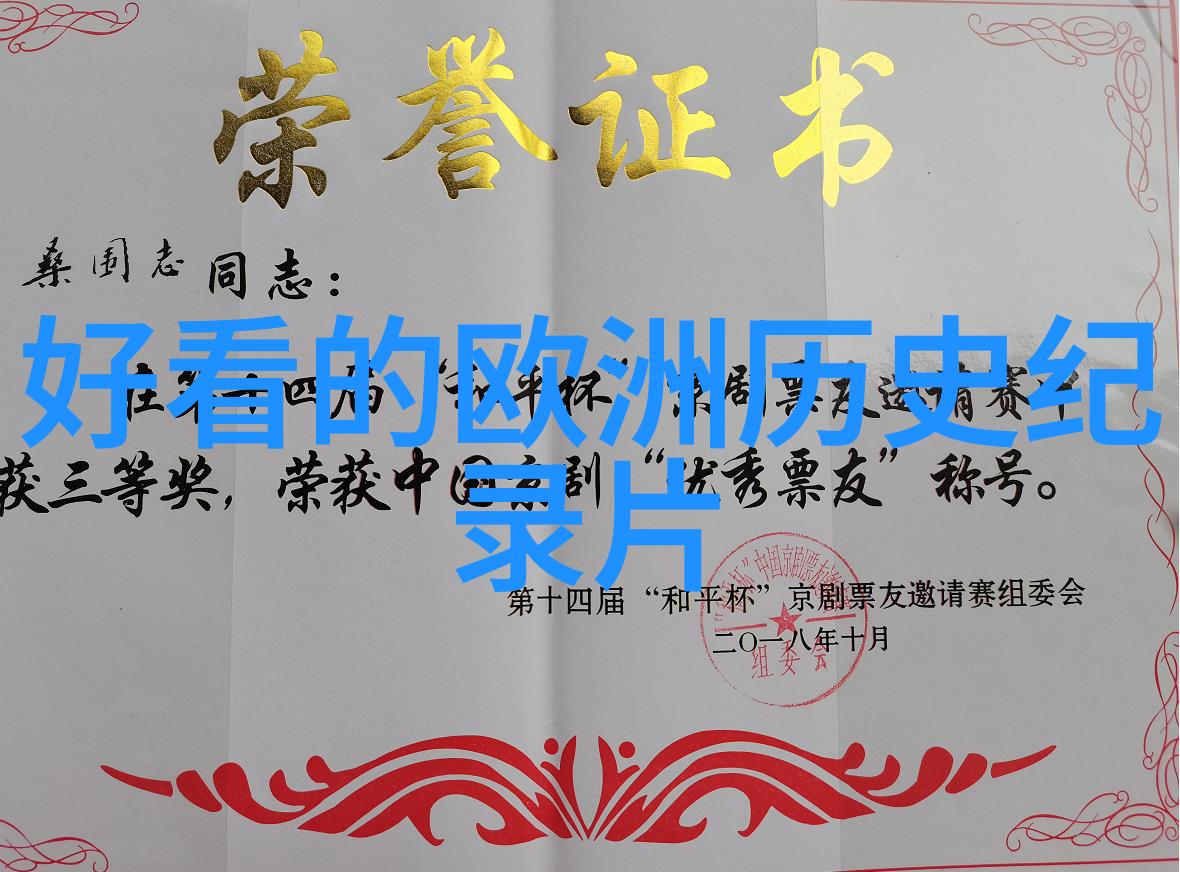 荣誉证书
桑国志同志：
好看的欧洲历史纪
在第十四届“和平杯”京剧票友邀请赛中
录片
获三等奖，荣获中国京剧“优秀票友”称号。
第十四届“和平杯”京剧票友邀请赛组委会
二〇一八年十月
组委会